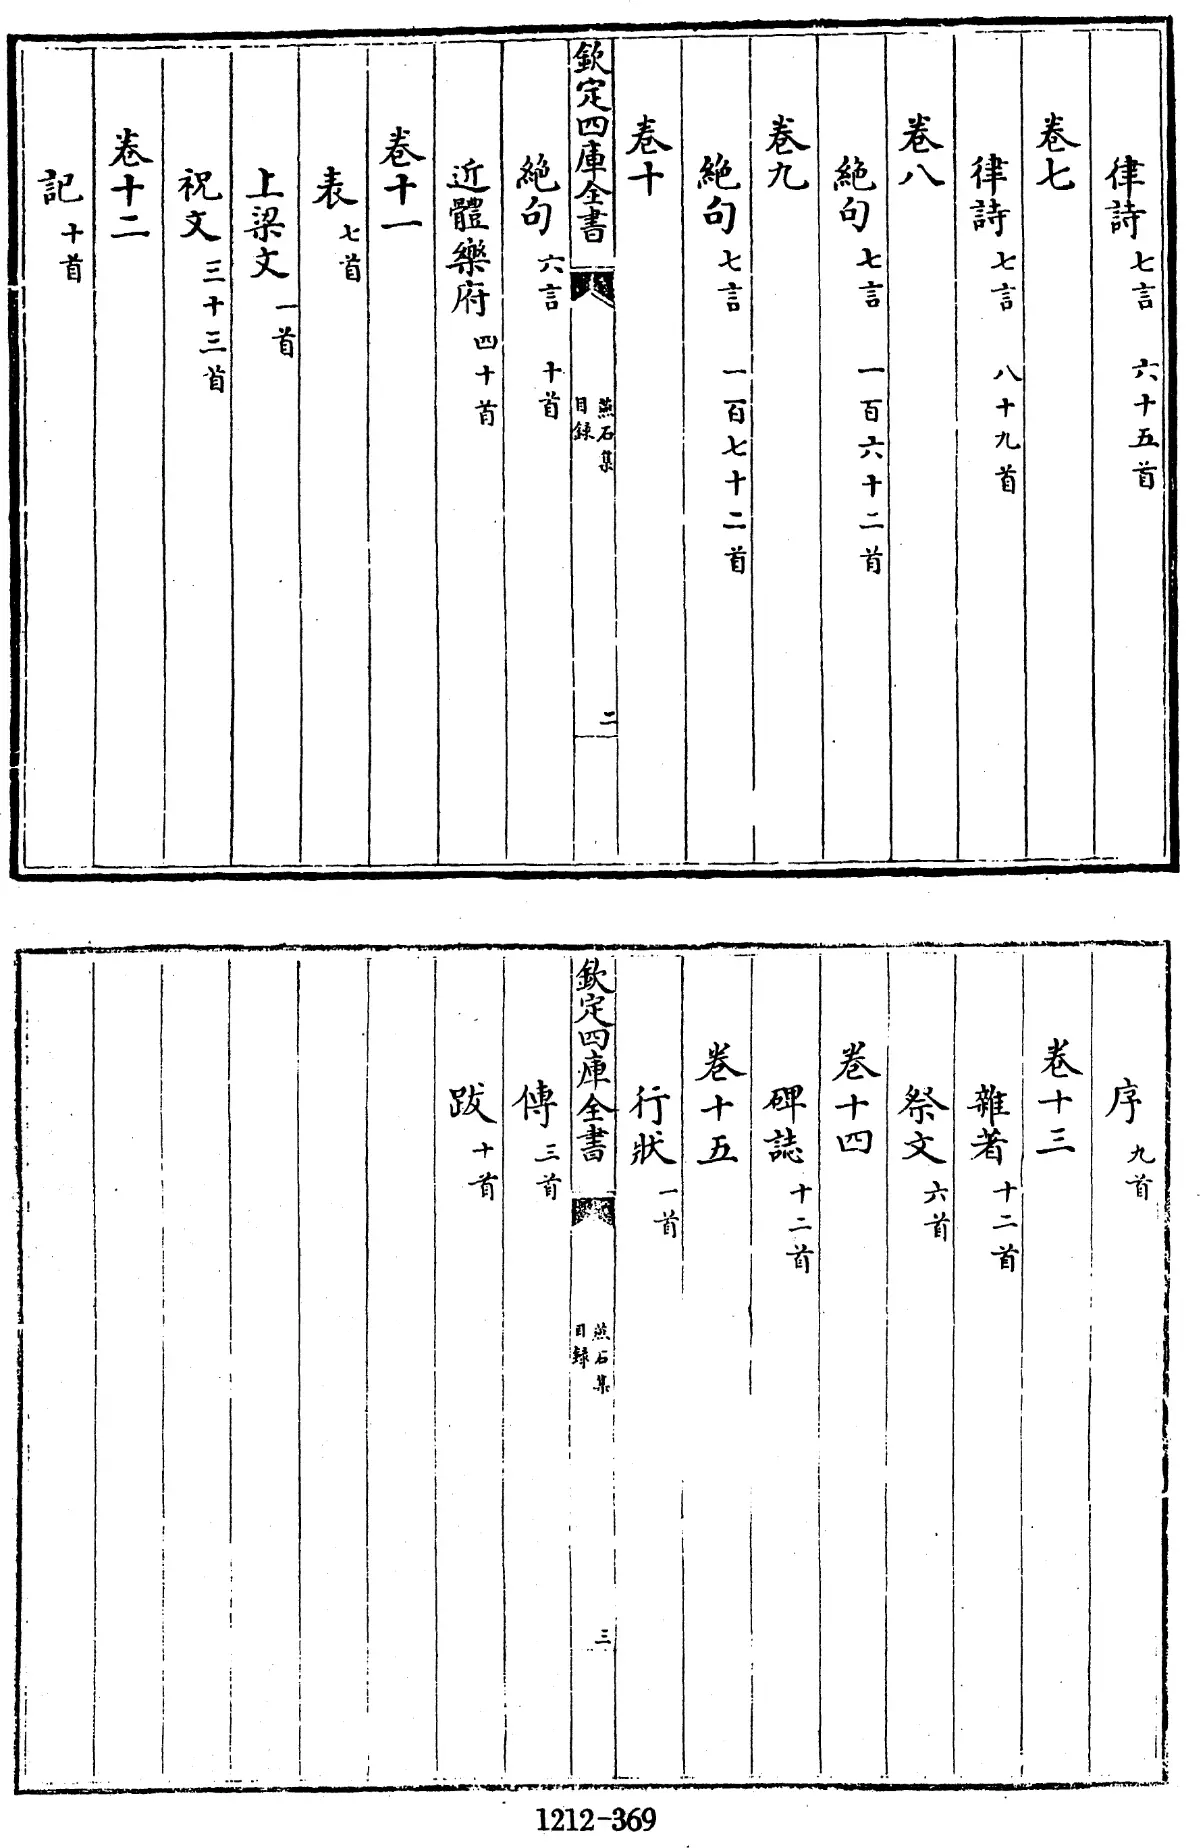 律詩 七言 六十五首
卷七
律詩 七言 八十九首
卷八
絶句 七言 一百六十二首
卷九
絶句 七言 一百七十二首
卷十
欽定四庫全書 燕石集 目録 二
絶句 六言 十首
近體樂府 四十首
卷十一
表 七首
上梁文 一首
祝文 三十三首
卷十二
記 十首
序 九首
卷十三
雜著 十二首
祭文 六首
卷十四
碑誌 十二首
卷十五
行狀 一首
欽定四庫全書 燕石集 目録 三
傳 三首
跋 十首
1212-369